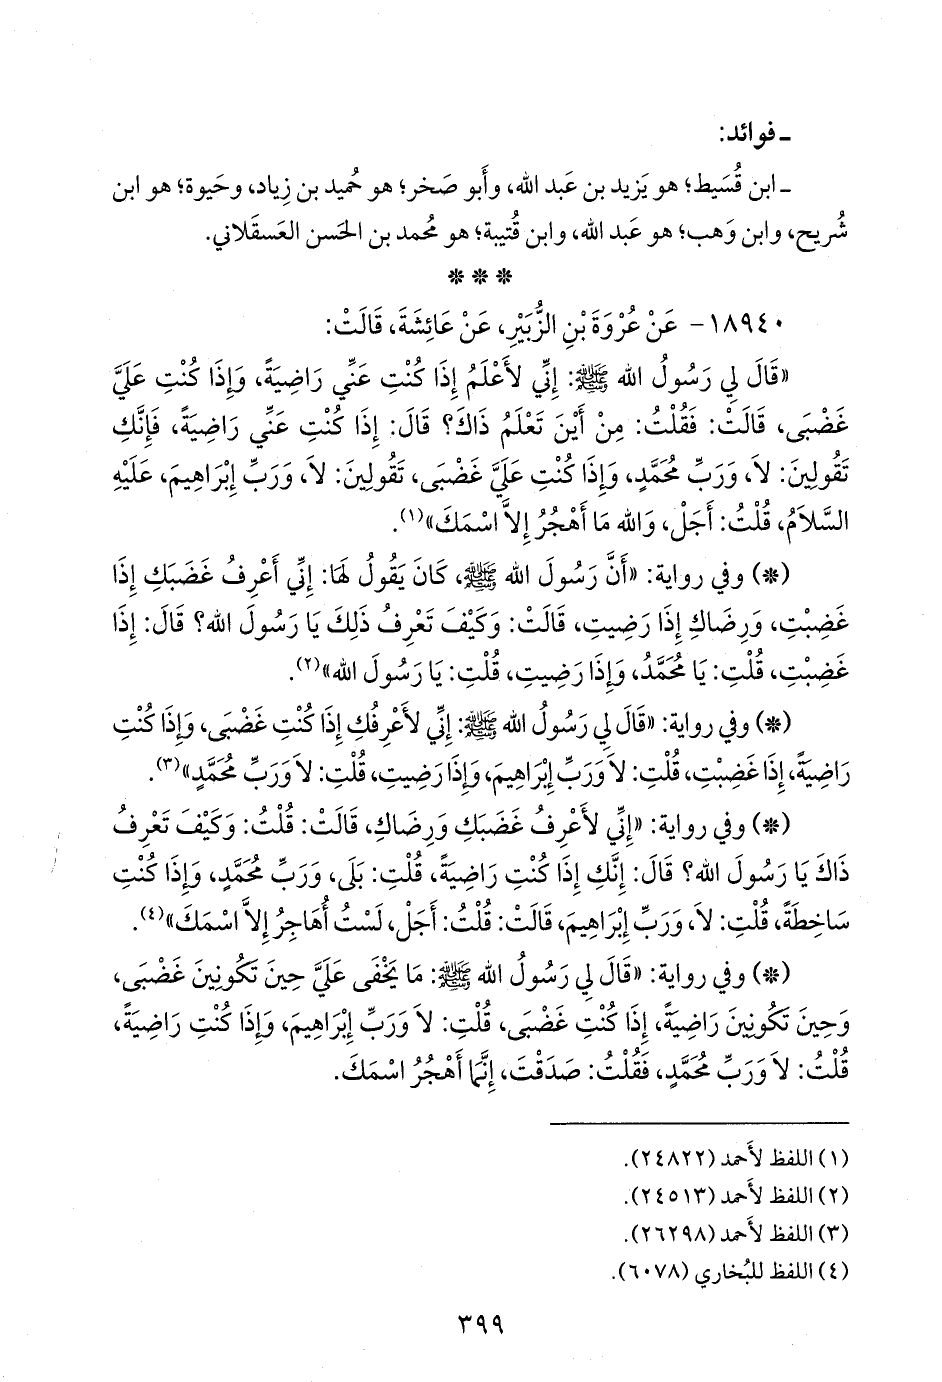 ـ فوائد:
ـ ابن قُسَيط؛ هو يَزيد بن عَبد الله، وأَبو صَخر؛ هو حُميد بن زِياد، وحَيوة؛ هو ابن
شُريح، وابن وَهب؛ هو عَبد الله، وابن قُتيبة؛ هو مُحمد بن الحَسن العَسقَلاني.
***
١٨٩٤٠- عَنْ عُرْوَةَ بْنِ الزُّبَيْرِ، عَنْ عَائِشَةَ، قَالَتْ:
«قَالَ لِي رَسُولُ الله ﷺ: إِنِّي لأَعْلَمُ إِذَا كُنْتِ عَنِّي رَاضِيَةً، وَإِذَا كُنْتِ عَلَيَّ
غَضْبَى، قَالَتْ: فَقُلْتُ: مِنْ أَيْنَ تَعْلَمُ ذَاكَ؟ قَالَ: إِذَا كُنْتِ عَنِّي رَاضِيَةً، فَإِنَّكِ
تَقُولِينَ: لاَ، وَرَبِّ مُحَمَّدٍ، وَإِذَا كُنْتِ عَلَيَّ غَضْبَى، تَقُولِينَ: لاَ، وَرَبِّ إِبْرَاهِيمَ، عَلَيْهِ
السَّلاَمُ، قُلْتُ: أَجَلْ، وَالله مَا أَهْجُرُ إِلاَّ اسْمَكَ»(١).
(*) وفي رواية: «أَنَّ رَسُولَ الله ﷺ، كَانَ يَقُولُ لَهَا: إِنِّي أَعْرِفُ غَضَبَكِ إِذَا
غَضِبْتِ، وَرِضَاكِ إِذَا رَضِيتِ، قَالَتْ: وَكَيْفَ تَعْرِفُ ذَلِكَ يَا رَسُولَ الله؟ قَالَ: إِذَا
غَضِبْتِ، قُلْتِ: يَا مُحَمَّدُ، وَإِذَا رَضِيتِ، قُلْتِ: يَا رَسُولَ الله»(٢).
(*) وفي رواية: «قَالَ لِي رَسُولُ الله ﷺ: إِنِّي لأَعْرِفُكِ إِذَا كُنْتِ غَضْبَى، وَإِذَا كُنْتِ
رَاضِيَةً، إِذَا غَضِبْتِ، قُلْتِ: لاَ وَرَبِّ إِبْرَاهِيمَ، وَإِذَا رَضِيتِ، قُلْتِ: لاَ وَرَبِّ مُحَمَّدٍ»(٣).
(*) وفي رواية: «إِنِّي لأَعْرِفُ غَضَبَكِ وَرِضَاكِ، قَالَتْ: قُلْتُ: وَكَيْفَ تَعْرِفُ
ذَاكَ يَا رَسُولَ الله؟ قَالَ: إِنَّكِ إِذَا كُنْتِ رَاضِيَةً، قُلْتِ: بَلَى، وَرَبِّ مُحَمَّدٍ، وَإِذَا كُنْتِ
سَاخِطَةً، قُلْتِ: لاَ، وَرَبِّ إِبْرَاهِيمَ، قَالَتْ: قُلْتُ: أَجَلْ، لَسْتُ أُهَاجِرُ إِلاَّ اسْمَكَ»(٤).
(*) وفي رواية: «قَالَ لِي رَسُولُ الله ﷺ: مَا يَخْفَى عَلَيَّ حِينَ تَكُونِينَ غَضْبَى،
وَحِينَ تَكُونِينَ رَاضِيَةً، إِذَا كُنْتِ غَضْبَى، قُلْتِ: لاَ وَرَبِّ إِبْرَاهِيمَ، وَإِذَا كُنْتِ رَاضِيَةً،
قُلْتُ: لاَ وَرَبِّ مُحَمَّدٍ، فَقُلْتُ: صَدَقْتَ، إِنَّمَا أَهْجُرُ اسْمَكَ.
(١) اللفظ لأَحمد (٢٤٨٢٢).
(٢) اللفظ لأَحمد (٢٤٥١٣).
(٣) اللفظ لأَحمد (٢٦٢٩٨).
(٤) اللفظ للبُخاري (٦٠٧٨).
٣٩٩